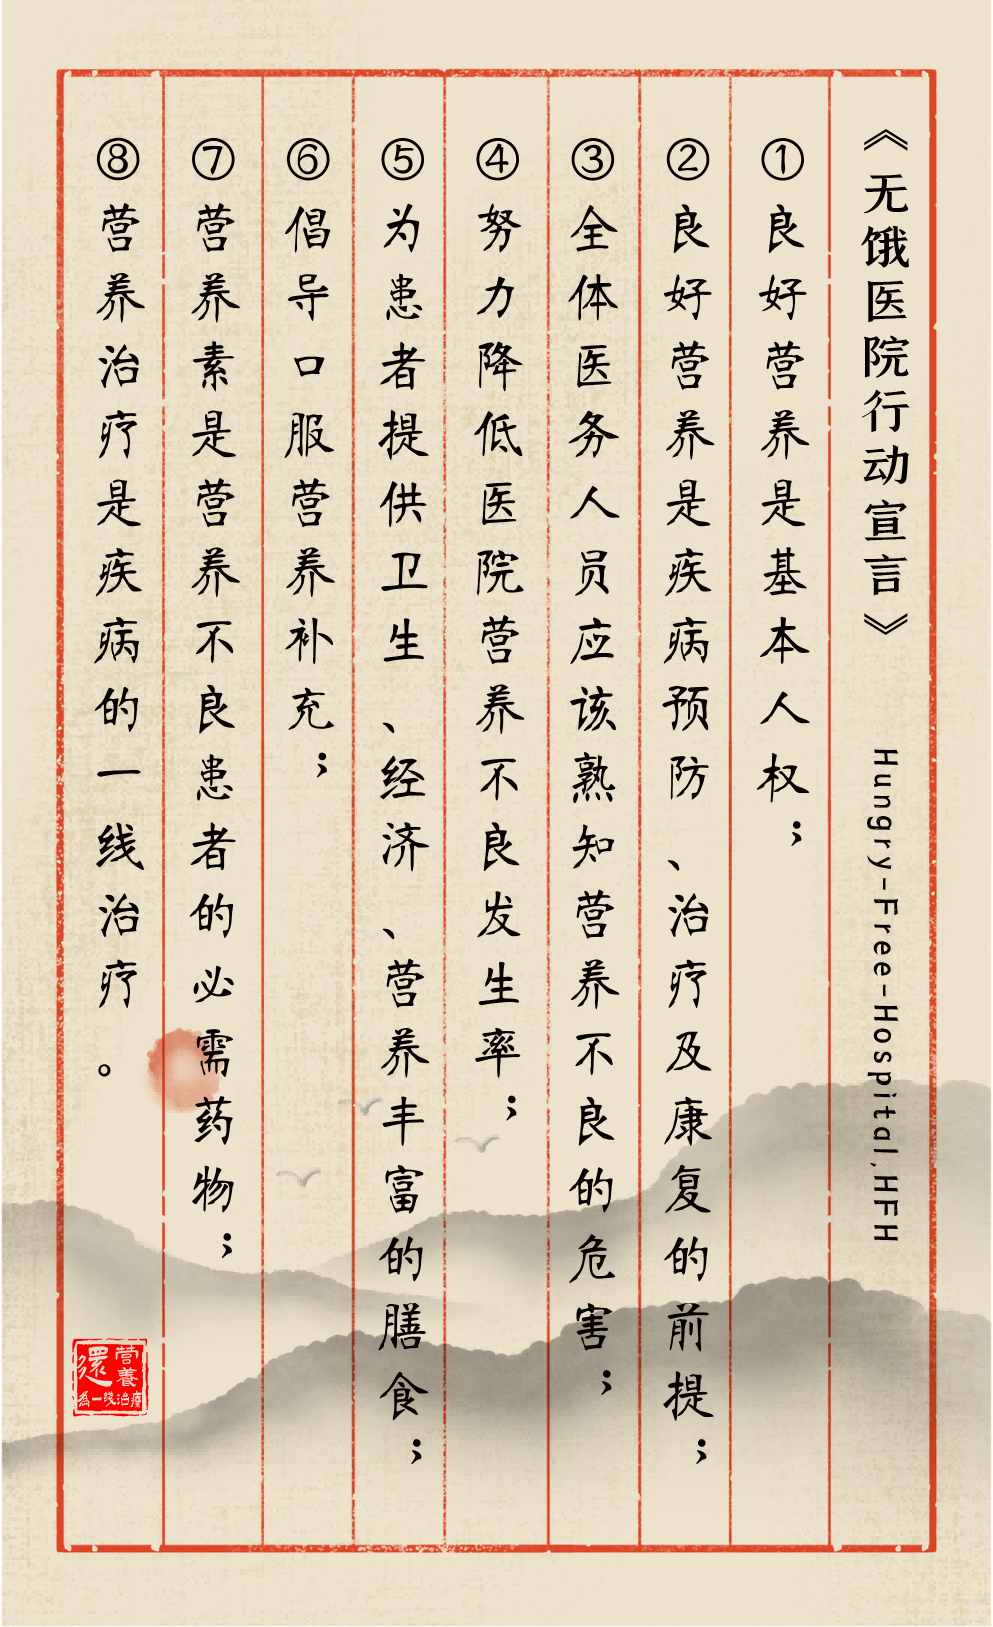 《无饿医院行动宣言》 Hungry-Free-Hospital,HFH
①良好营养是基本人权；
②良好营养是疾病预防、治疗及康复的前提；
③全体医务人员应该熟知营养不良的危害；
④努力降低医院营养不良发生率；
⑤为患者提供卫生、经济、营养丰富的膳食；
⑥倡导口服营养补充；
⑦营养素是营养不良患者的必需药物；
⑧营养治疗是疾病的一线治疗。
還營養
為一线治療